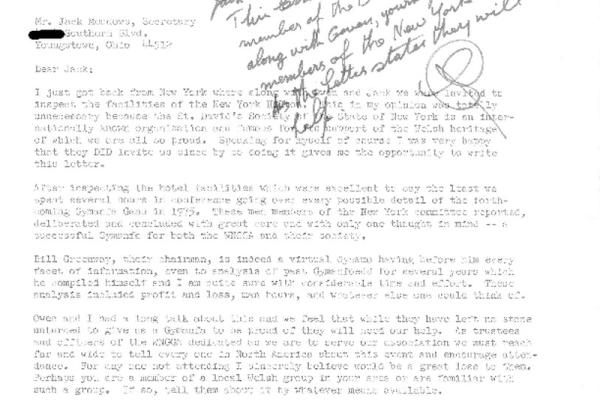 Jack
This
Mr. Jack Meadows, Secretary
member of the
Southern Blvd.
along with Gowan, yours
Youngstown, Ohio 44512
members of the New York
as the letter states they will
Dear Jack:
help
I just got back from New York where along with and Jack we were invited to
inspect the facilities of the New York in my opinion was totally
unnecessary because the St. David's Society of State of New York is an inter-
nationally known organization and famous for its support of the Welsh heritage
of which we are all so proud. Speaking for myself of course I was very happy
that they DID invite us since by so doing it gives me the opportunity to write
this letter.
After inspecting the hotel facilities which were excellent to say the least we
spent several hours in conference going over every possible detail of the forth-
coming Gymanfa Ganu in 1975. These men members of the New York committee reported,
deliberated and concluded with great care and with only one thought in mind -- a
successful Gymanfa for both the WNGGA and their society.
Bill Greenway, their chairman, is indeed a virtual dynamo having before him every
facet of information, even to analysis of past Gymanfaodd for several years which
he compiled himself and I am quite sure with considerable time and effort. These
analysis included profit and loss, man hours, and whatever else one could think of.
Owen and I had a long talk about this and we feel that while they have left no stone
unturned to give us a Gymanfa to be proud of they will need our help. As trustees
and officers of the WNGGA dedicated as we are to serve our association we must reach
far and wide to tell every one in North America about this event and encourage atten-
dance. For any one not attending I sincerely believe would be a great loss to them.
Perhaps you are a member of a local Welsh group in your area or are familiar with
such a group. If so, tell them about it by whatever means available.